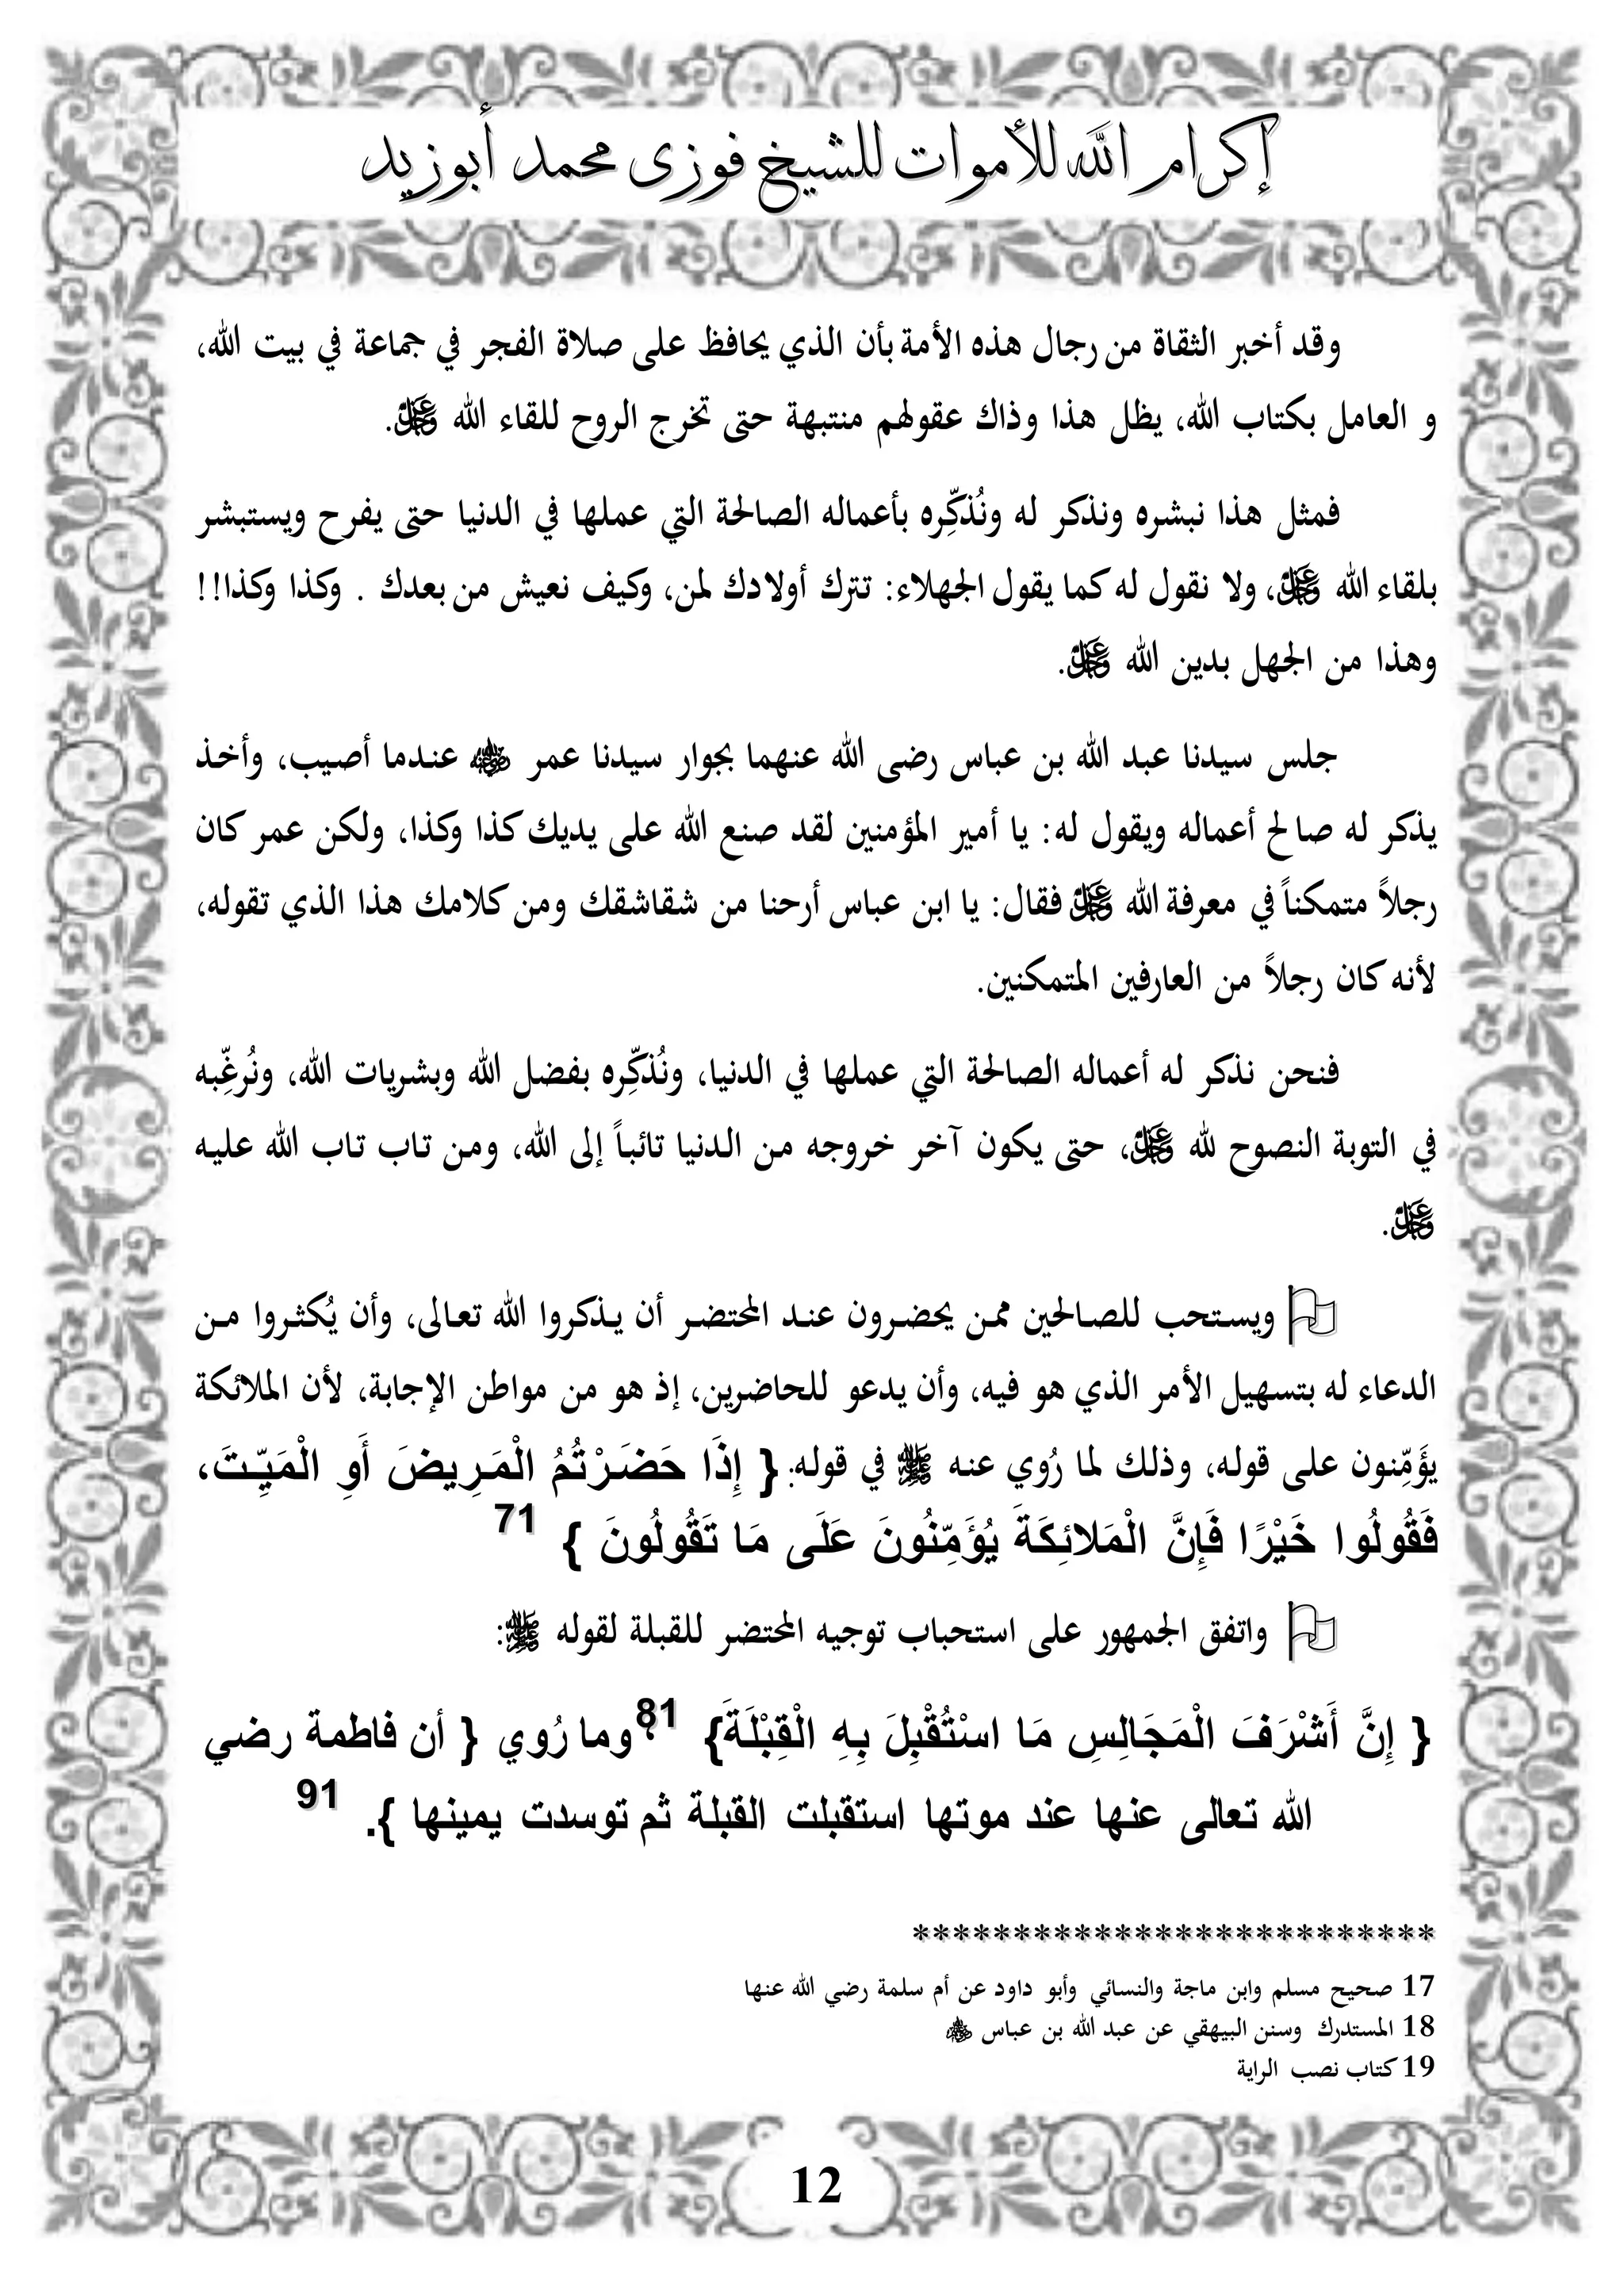 إكرام الله للأموات للشيخ فوزى محمد أبوزيد
وقد أخبر الثقاة من رجال هذه الأمة بأن الذي يحافظ على صلاة الفجر في جماعة في بيت الله،
و العامل بكتاب الله، يظل هذا وذاك عقولهم منتبهة حتى تخرج الروح للقاء الله عز وجل.
فمثل هذا نبشره ونذكر له ونُذكِّره بأعماله الصالحة التي عملها في الدنيا حتى يفرح ويستبشر
بلقاء الله عز وجل، ولا نقول له كما يقول الجهلاء: تترك أولادك لمن، وكيف نعيش من بعدك . وكذا وكذا!!
وهذا من الجهل بدين الله عز وجل.
جلس سيدنا عبد الله بن عباس رضى الله عنهما بجوار سيدنا عمر رضي الله عنه عندما أصيب، وأخذ
يذكر له صالح أعماله ويقول له: يا أمير المؤمنين لقد صنع الله على يديك كذا وكذا، ولكن عمر كان
رجلاً متمكناً في معرفة الله عز وجل فقال: يا ابن عباس أرحنا من شقاشقك ومن كلامك هذا الذي تقوله،
لأنه كان رجلاً من العارفين المتمكنين.
فنحن نذكر له أعماله الصالحة التي عملها في الدنيا، ونُذكِّره بفضل الله وبشريات الله، ونُرغِّبه
في التوبة النصوح لله عز وجل، حتى يكون آخر خروجه من الدنيا تائباً إلى الله، ومن تاب تاب الله عليه
عز وجل.
ويستحب للصالحين ممن يحضرون عند المحتضر أن يذكروا الله تعالى، وأن يُكثروا من
الدعاء له بتسهيل الأمر الذي هو فيه، وأن يدعو للحاضرين، إذ هو من مواطن الإجابة، لأن الملائكة
يؤَمِّنون على قوله، وذلك لما رُوي عنه ﷺ في قوله: { إِذَا حَضَرْتُمُ الْمَرِيضَ أَوِ الْمَيِّتَ،
فَقُولُوا خَيْرًا فَإِنَّ الْمَلائِكَةَ يُؤَمِّنُونَ عَلَى مَا تَقُولُونَ } 71
واتفق الجمهور على استحباب توجيه المحتضر للقبلة لقوله ﷺ:
{ إِنَّ أَشْرَفَ الْمَجَالِسِ مَا اسْتُقْبِلَ بِهِ الْقِبْلَةَ} 81؟ وما رُوي { أن فاطمة رضي
الله تعالى عنها عند موتها استقبلت القبلة ثم توسدت يمينها }. 91
**************************
17 صحيح مسلم وابن ماجة والنسائي وأبو داود عن أم سلمة رضي الله عنها
18 المستدرك وسنن البيهقي عن عبد الله بن عباس رضي الله عنه
19 كتاب نصب الراية
12